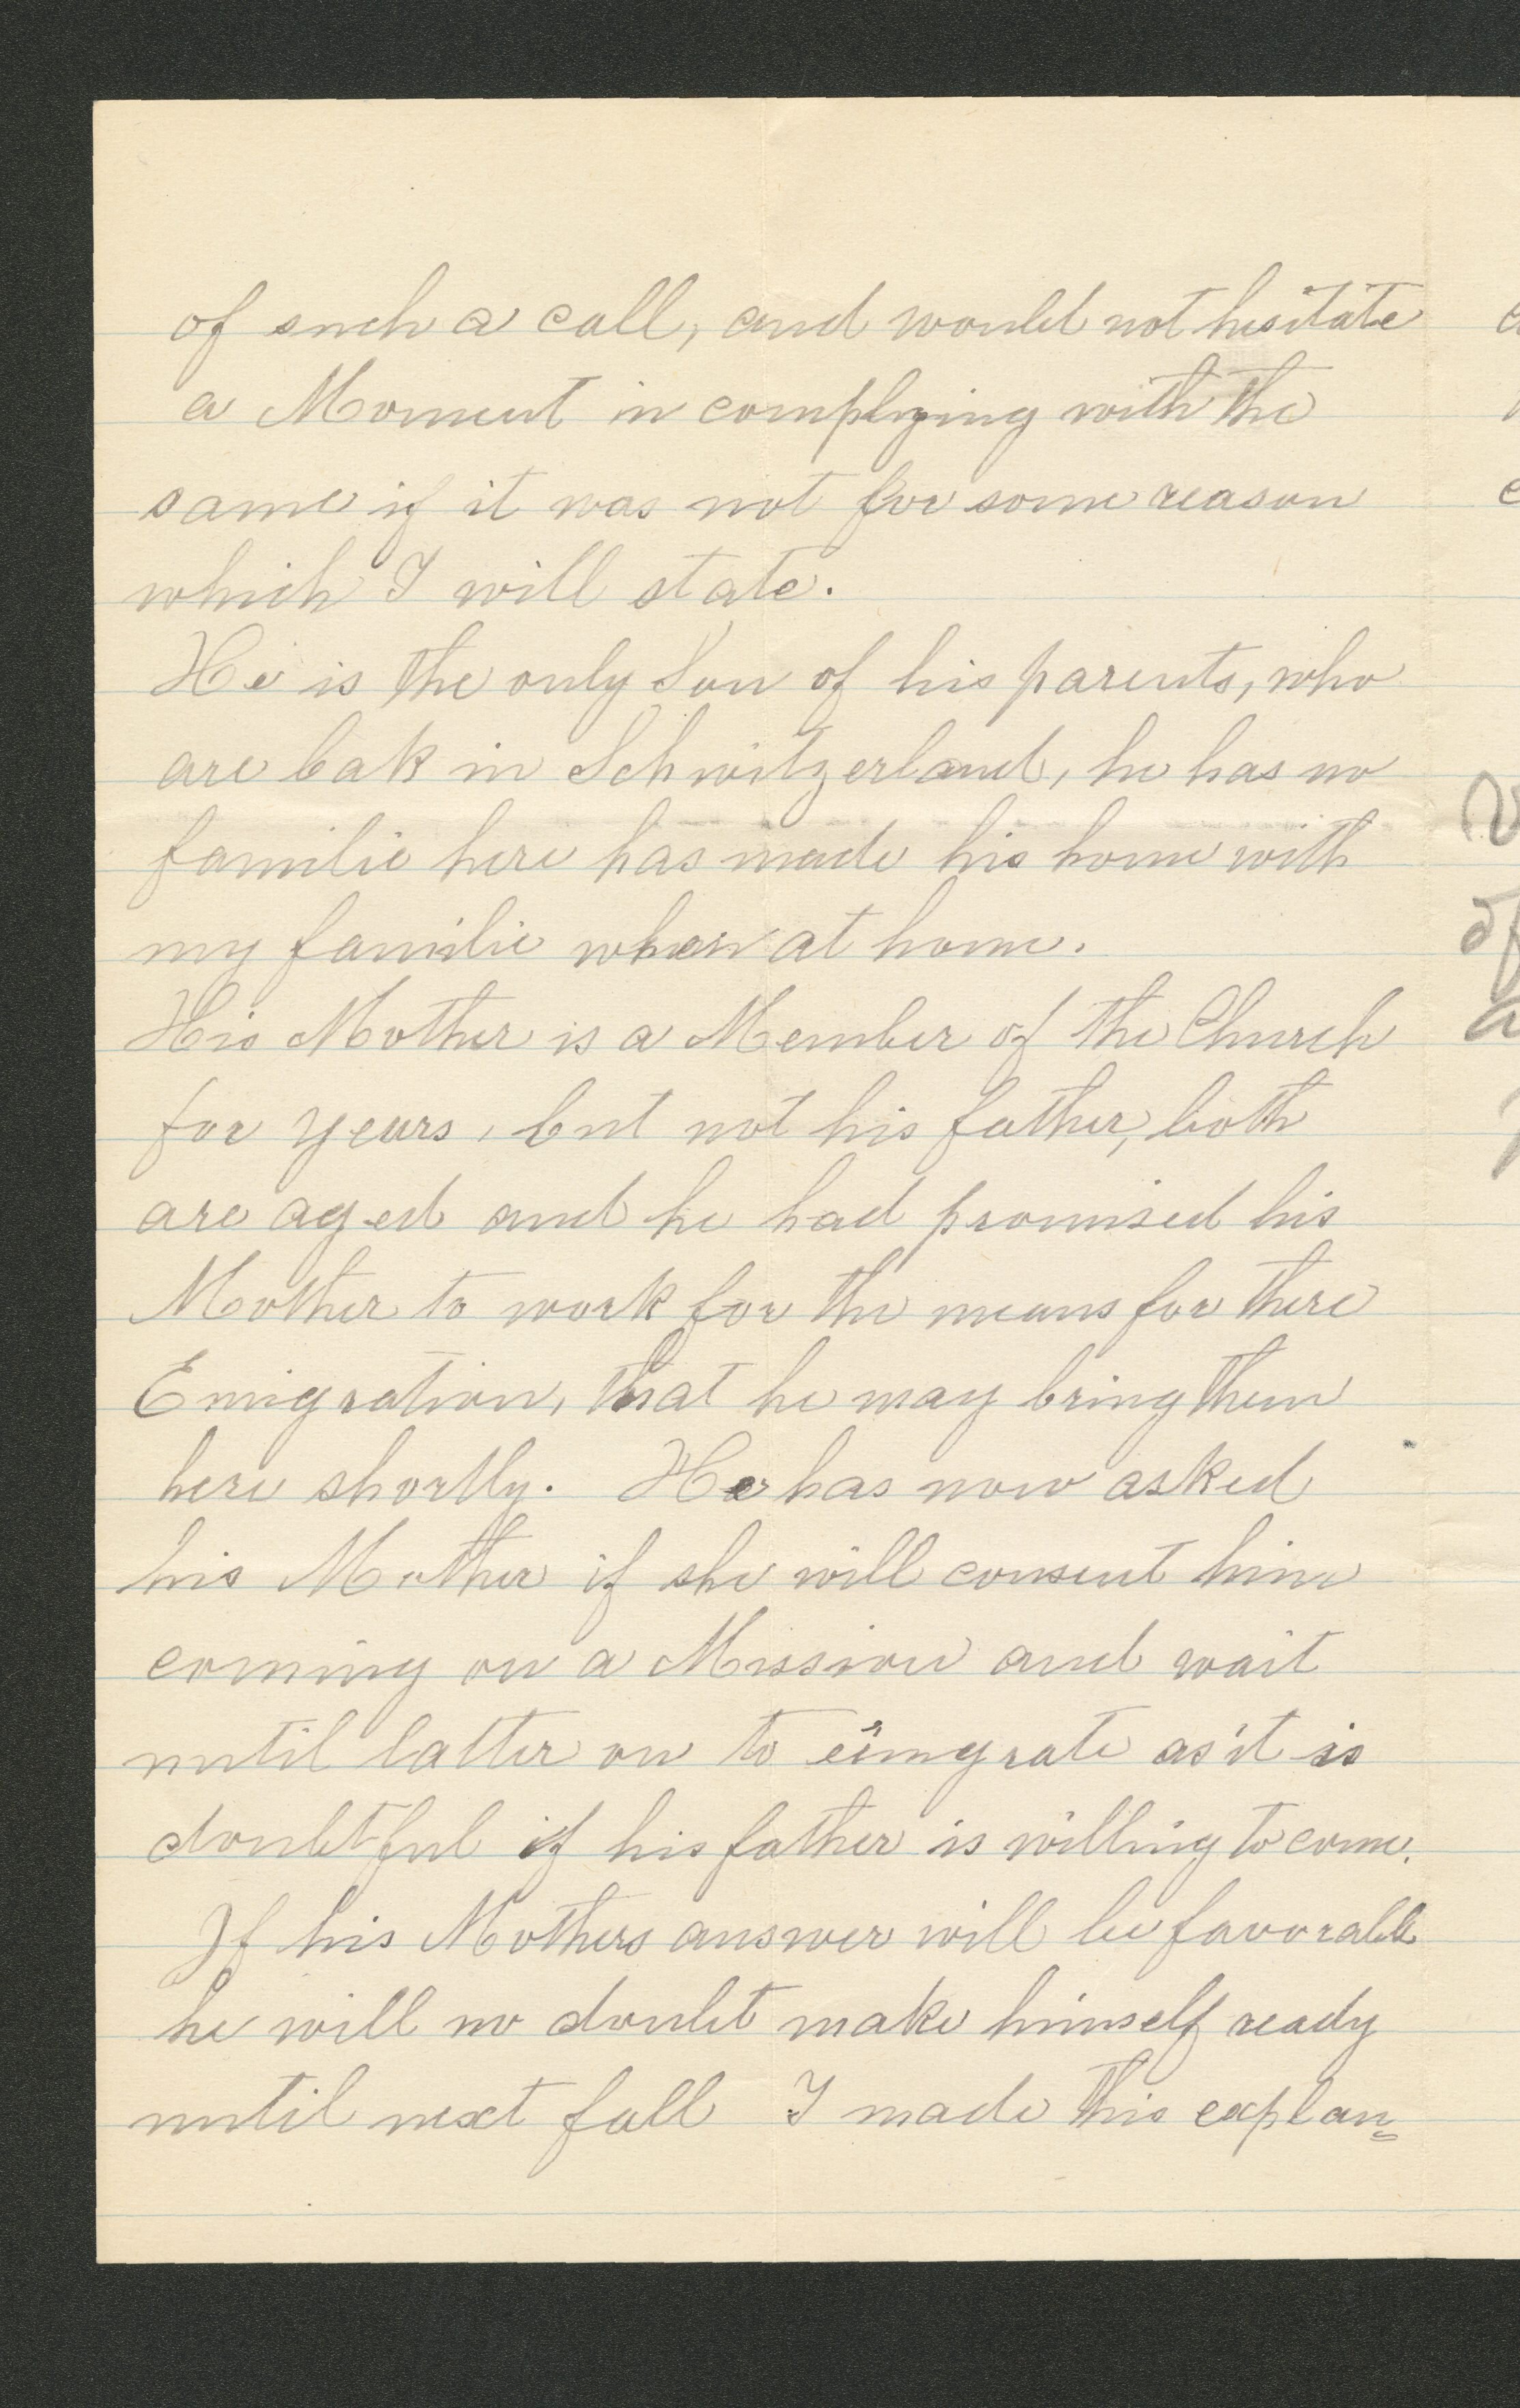 of such a call, and would not hesitate
a Moment in complying with the
same if it was not for some reason
which I will state.
He is the only Son of his parents, who
are bak in Schwitzerland, he has no
familie here has made his home with
my familie when at home.
His Mother is a Member of the Church
for years, but not his father, both
are aged and he had promised his
Mother to work for the means for there
Emigration, that he may bring them
here shortly. He has now asked
his Mother if she will consent him
coming on a Mission and wait
until latter on to eimgrate as it is
doubtful if his father is willing to come.
If his Mothers answer will be favorable
he will no doubt make himself ready
until next fall I made this explan=